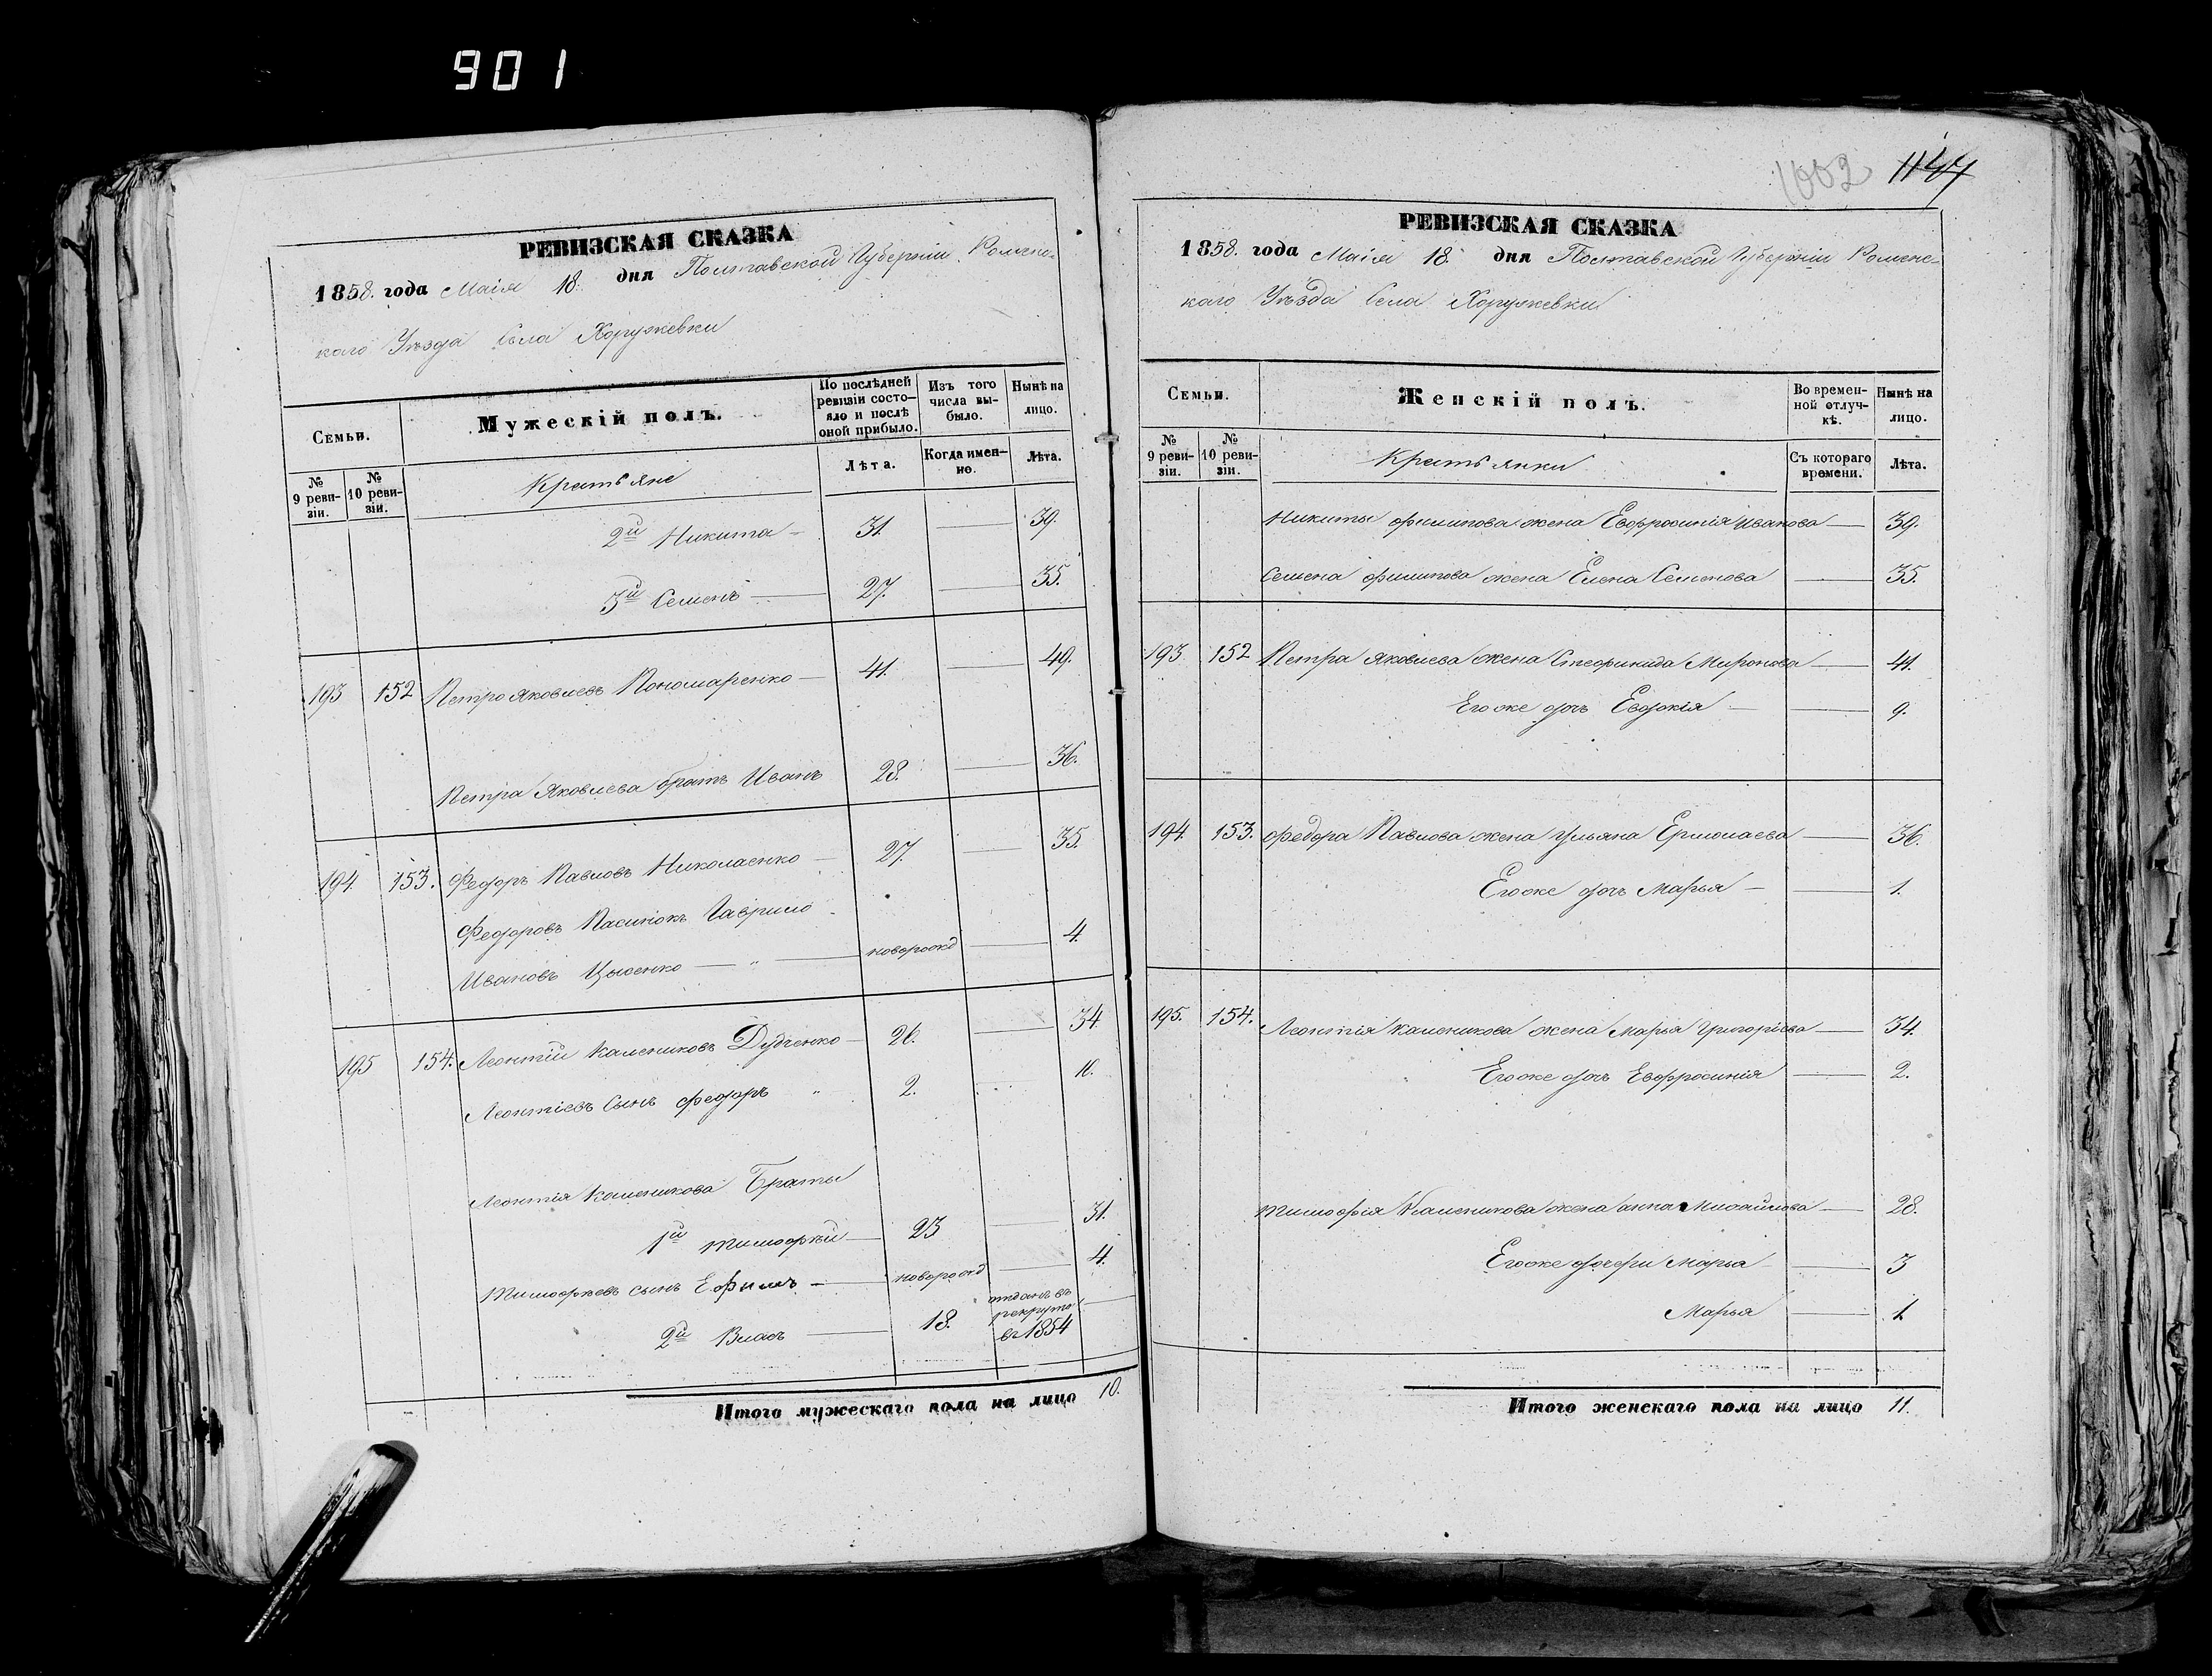 901
РЕВИЗСКАЯ СКАЗКА
1858. года Маія 18. дня Полтавской Губерніи Роменс-
каго Уѣзда Села Хоружевки
Семьи.
Мужескій полъ.
По послѣдней ревизіи состо-яло и послѣ оной прибыло.
Изъ того числа вы-было.
Нынѣ на лицо.
№ 9 реви-зіи.
№ 10 реви-зіи.
Крестьяне
Лѣта.
Когда имен-но.
Лѣта.
2й Никита — 31. — 39.
3й Семенъ — 27. — 35.
193 152 Петро Яковлевъ Пономаренко — 41. — 49.
Петра Яковлева братъ Иванъ 28. — 36.
194 153. Федоръ Павловъ Николаенко — 27. — 35.
Федоровъ Пасинокъ Гаврило
Ивановъ — " — новорожд — 4.
195 154. Леонтій Калениковъ Дудченко — 26. — 34
Леонтіевъ Сынъ Федоръ " 2. — 10.
Леонтія Каленикова Браты
1й Тимофѣй — 23 — 31.
Тимофѣевъ сынъ Ефимъ — новорожд — 4.
2й Власъ — 18. отданъ въ рекруты въ 1854 —
Итого мужескаго пола на лицо 10.
1002 1147
РЕВИЗСКАЯ СКАЗКА
1858. года Маія 18. дня Полтавской Губерніи Роменс-
каго Уѣзда Села Хоружевки
Семьи.
Женскій полъ.
Во времен-ной отлуч-кѣ.
Нынѣ на лицо.
№ 9 реви-зіи.
№ 10 реви-зіи.
Крестьянки
Съ котораго времени.
Лѣта.
Никиты Филипова жена Евфросинія Иванова — 39.
Семена Филипова жена Елена Семенова — 35.
193 152 Петра Яковлева жена Стефанида Миронова — 41.
Его же дочь Евдокія — 9.
194 153. Федора Павлова жена Ульяна Ермолаева — 36.
Его же дочь Марья — 1.
195. 154. Леонтія Каленикова жена Марья Григоріева — 34.
Его же дочь Евфросинія — 2.
Тимофія Каленикова жена Анна Михайлова — 28.
Его же дочери Марья — 3
Марья — 1
Итого женскаго пола на лицо 11.